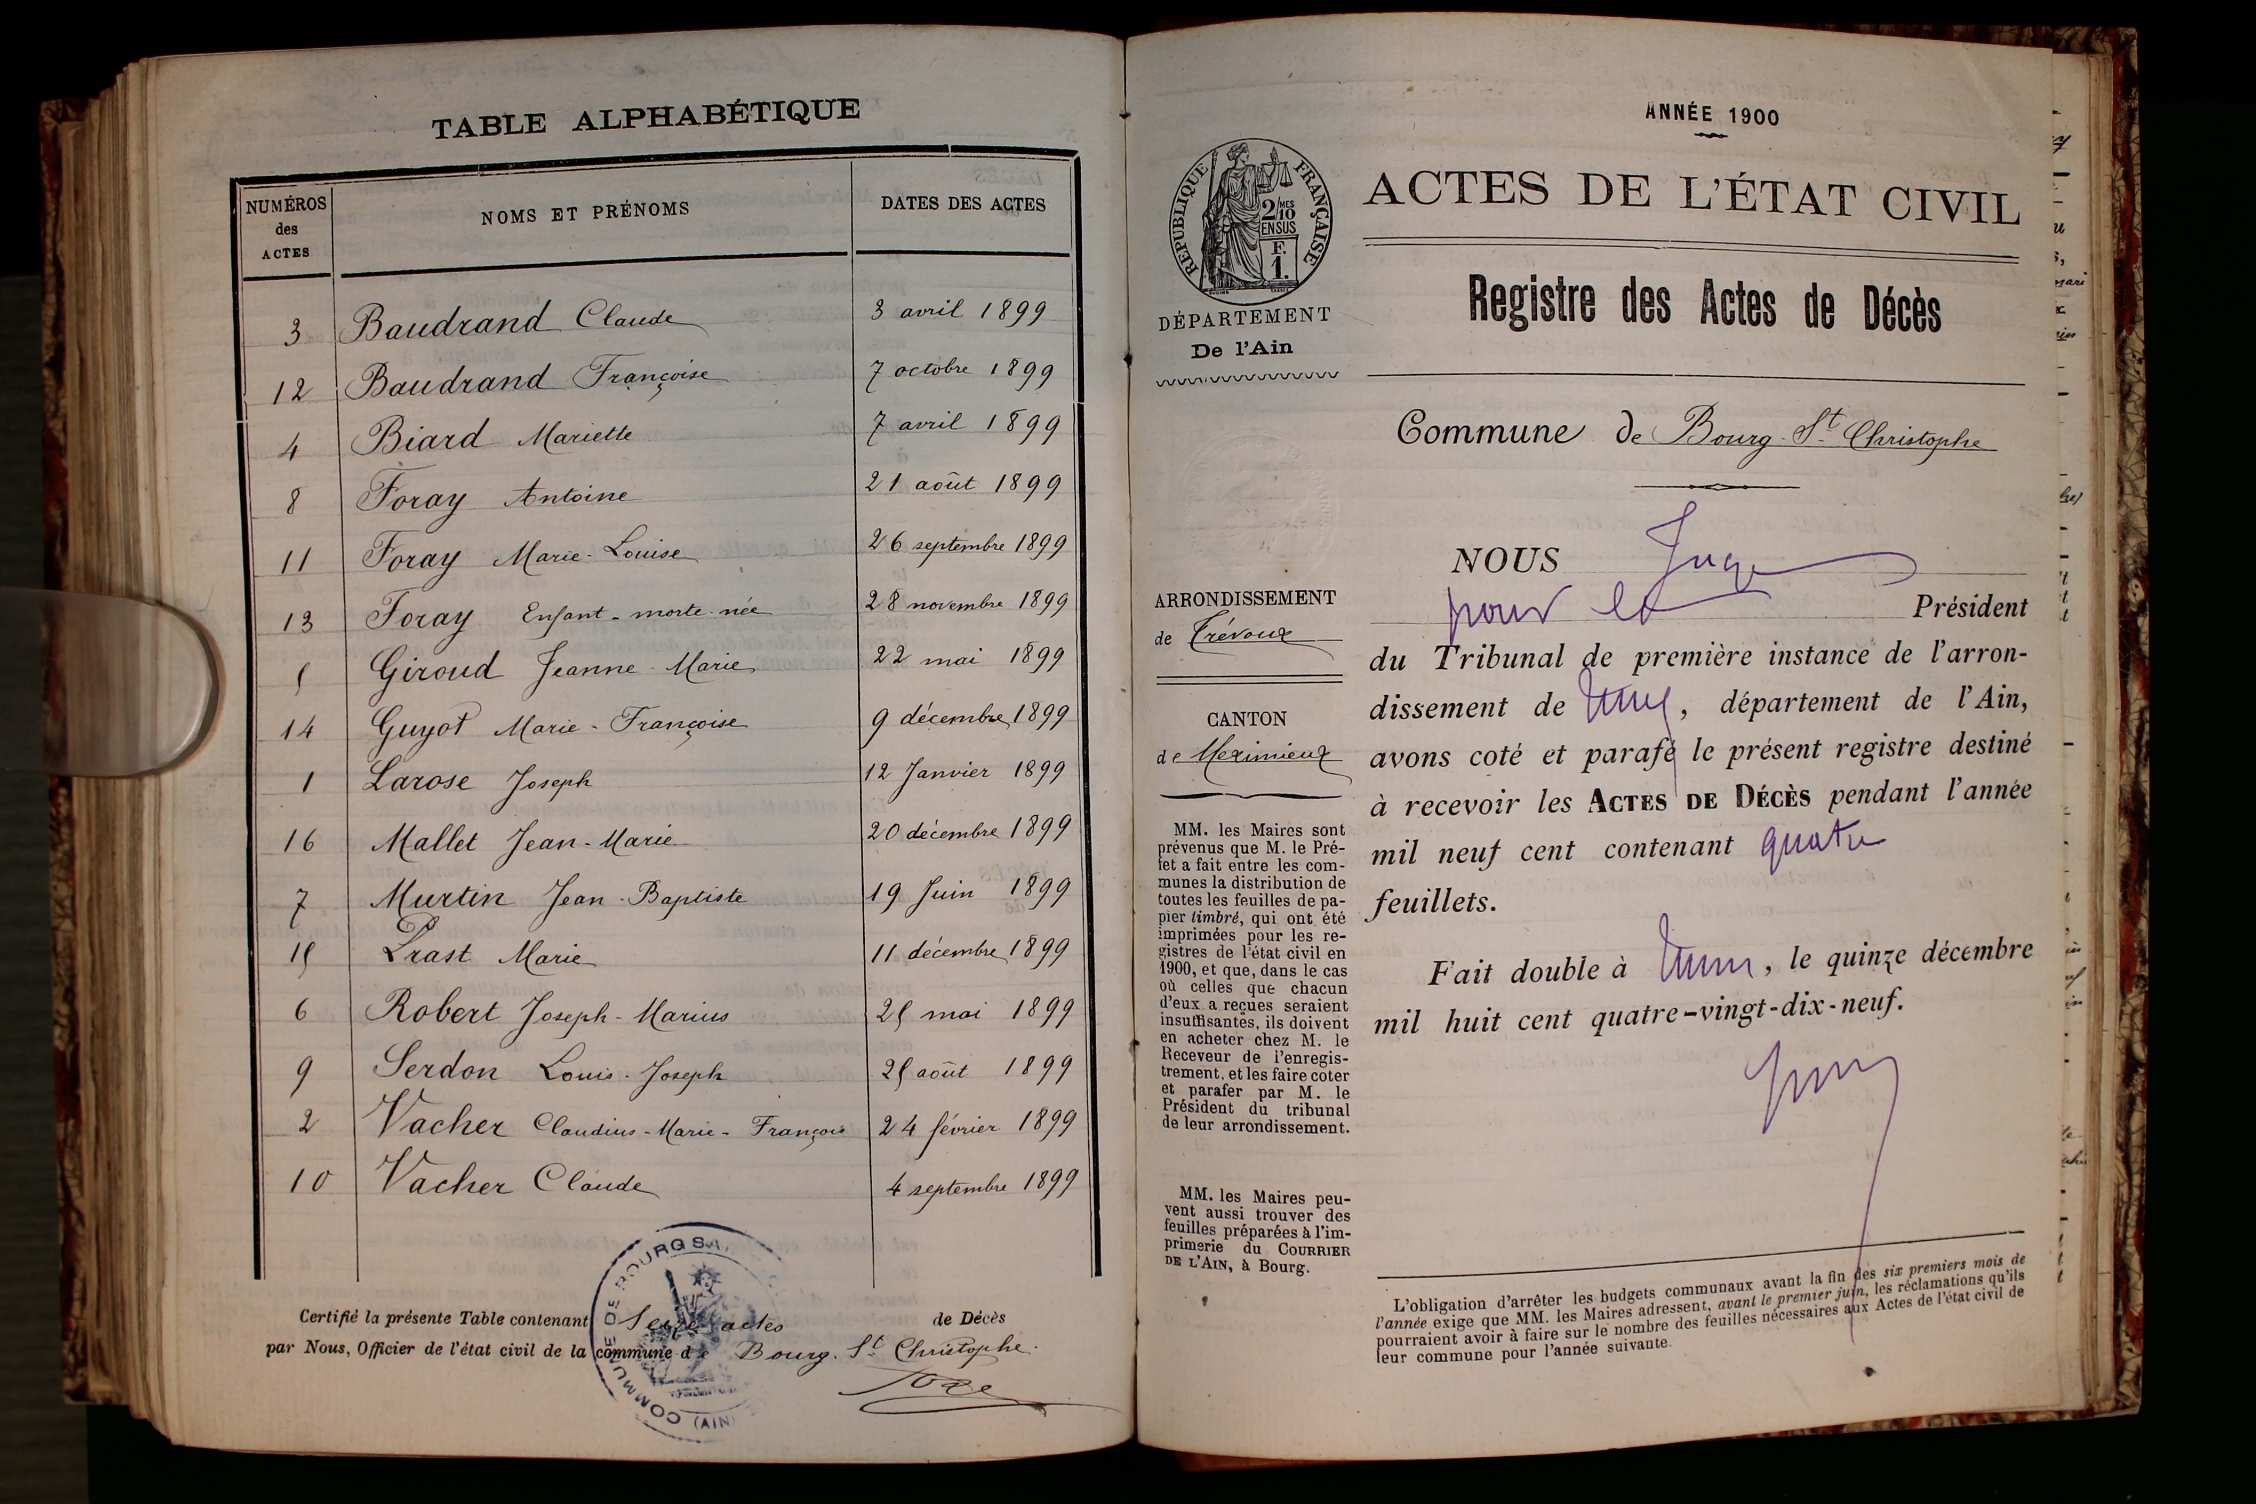 TABLE ALPHABÉTIQUE
NUMÉROS des ACTES NOMS ET PRÉNOMS DATES DES ACTES
3 Baudrand Claude 3 avril 1899
12 Baudrand Françoise 7 octobre 1899
4 Biard Mariette 7 avril 1899
8 Foray Antoine 21 août 1899
11 Foray Marie-Louise 26 septembre 1899
13 Foray Enfant-morte-née 28 novembre 1899
5 Giroud Jeanne-Marie 22 mai 1899
14 Guyot Marie-Françoise 9 décembre 1899
1 Larose Joseph 12 Janvier 1899
16 Mallet Jean-Marie 20 décembre 1899
7 Murtin Jean-Baptiste 19 Juin 1899
15 Prast Marie 11 décembre 1899
6 Robert Joseph-Marius 25 mai 1899
9 Serdon Louis-Joseph 25 août 1899
2 Vacher Claudius-Marie-François 24 février 1899
10 Vacher Claude 4 septembre 1899
Certifié la présente Table contenant Seize actes de Décès
par Nous, Officier de l'état civil de la commune de Bourg-St Christophe.
COMMUNE DE BOURG SA (AIN)
ANNÉE 1900
RÉPUBLIQUE FRANÇAISE
2/10 MES
EN SUS
F.
1.
DÉPARTEMENT
De l'Ain
ARRONDISSEMENT
de Trévoux
CANTON
de Meximieux
MM. les Maires sont
prévenus que M. le Pré-
fet a fait entre les com-
munes la distribution de
toutes les feuilles de pa-
pier timbré, qui ont été
imprimées pour les re-
gistres de l'état civil en
1900, et que, dans le cas
où celles que chacun
d'eux a reçues seraient
insuffisantes, ils doivent
en acheter chez M. le
Receveur de l'enregis-
trement, et les faire coter
et parafer par M. le
Président du tribunal
de leur arrondissement.
MM. les Maires peu-
vent aussi trouver des
feuilles préparées à l'im-
primerie du COURRIER
DE L'AIN, à Bourg.
ACTES DE L'ÉTAT CIVIL
Registre des Actes de Décès
Commune de Bourg-St Christophe
NOUS Juge
pour le Président
du Tribunal de première instance de l'arron-
dissement de , département de l'Ain,
avons coté et parafé le présent registre destiné
à recevoir les ACTES DE DÉCÈS pendant l'année
mil neuf cent contenant quatre
feuillets.
Fait double à , le quinze décembre
mil huit cent quatre-vingt-dix-neuf.
L'obligation d'arrêter les budgets communaux avant la fin des six premiers mois de
l'année exige que MM. les Maires adressent, avant le premier juin, les réclamations qu'ils
pourraient avoir à faire sur le nombre des feuilles nécessaires aux Actes de l'état civil de
leur commune pour l'année suivante.